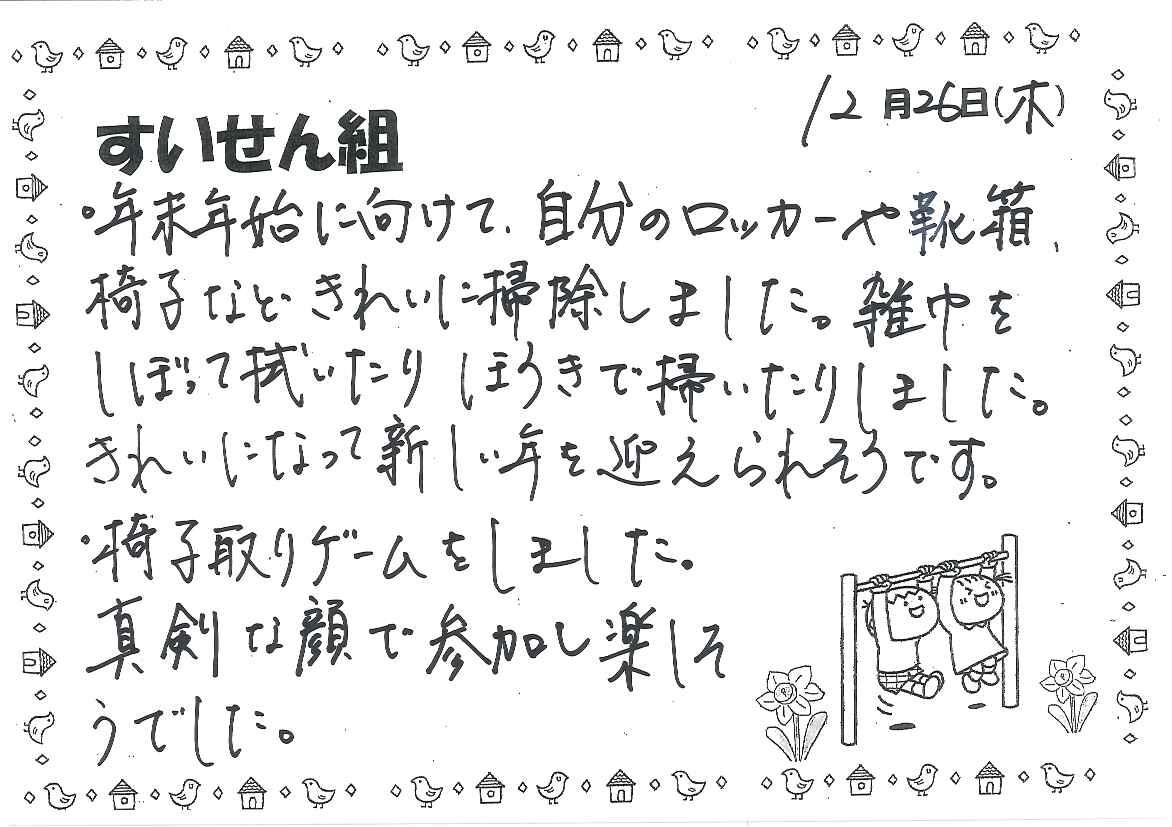 12月26日(木)
すいせん組
・年末年始に向けて、自分のロッカーや靴箱、
椅子など、きれいに掃除しました。雑巾を
しぼって拭いたりほうきで掃いたりしました。
きれいになって新しい年を迎えられそうです。
・椅子取りゲームをしました。
真剣な顔で参加し楽しそ
うでした。